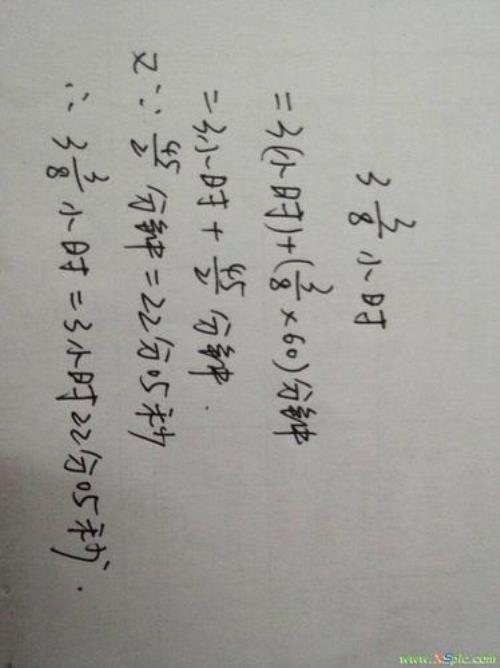 3 3/8 小时
=3(小时)+(3/8×60)分钟
=3小时+45/2分钟.
又∵45/2分钟=22分05秒
∴3 3/8小时=3小时22分05秒.
www.XSpic.com